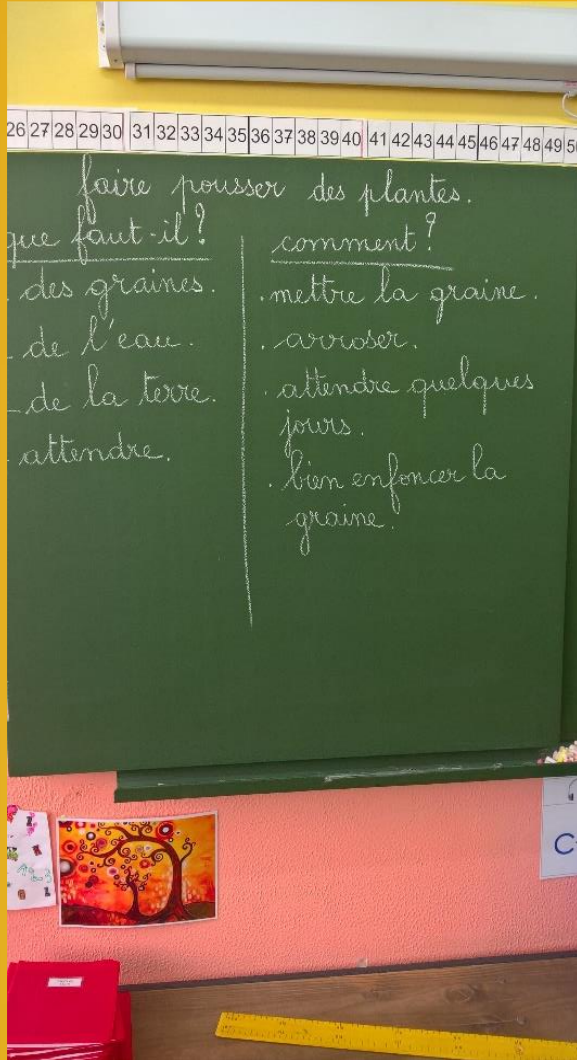 26 27 28 29 30 31 32 33 34 35 36 37 38 39 40 41 42 43 44 45 46 47 48 49
faire pousser des plantes.
que faut-il?
. des graines.
- de l'eau.
- de la terre.
. attendre.
comment?
. mettre la graine.
. arroser.
. attendre quelques
jours.
. bien enfoncer la
graine.